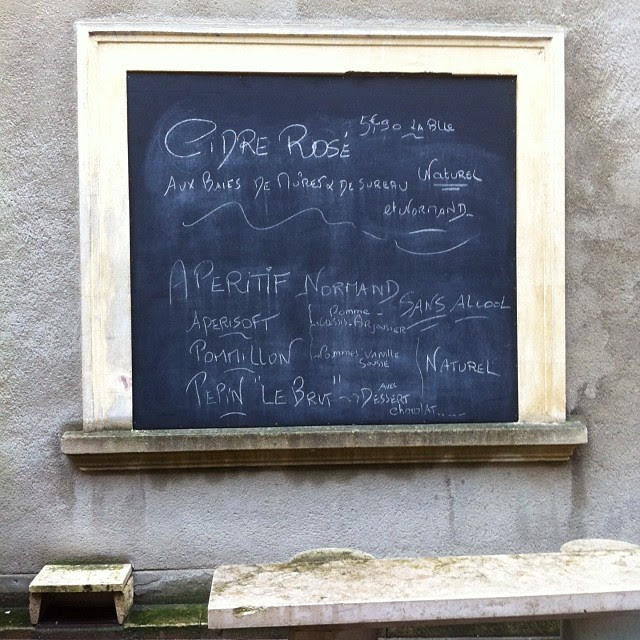 CIDRE ROSÉ 5€,90 LA Blle
AUX BAIES DE MÛRES & DE SUREAU NATUREL
et NORMAND
APERITIF NORMAND SANS ALCOOL
APERISOFT Pomme-
POMMILLON Pommes Vanille
NATUREL
PEPIN "LE BRUT" AVEC
DESSERT
chocolat.....